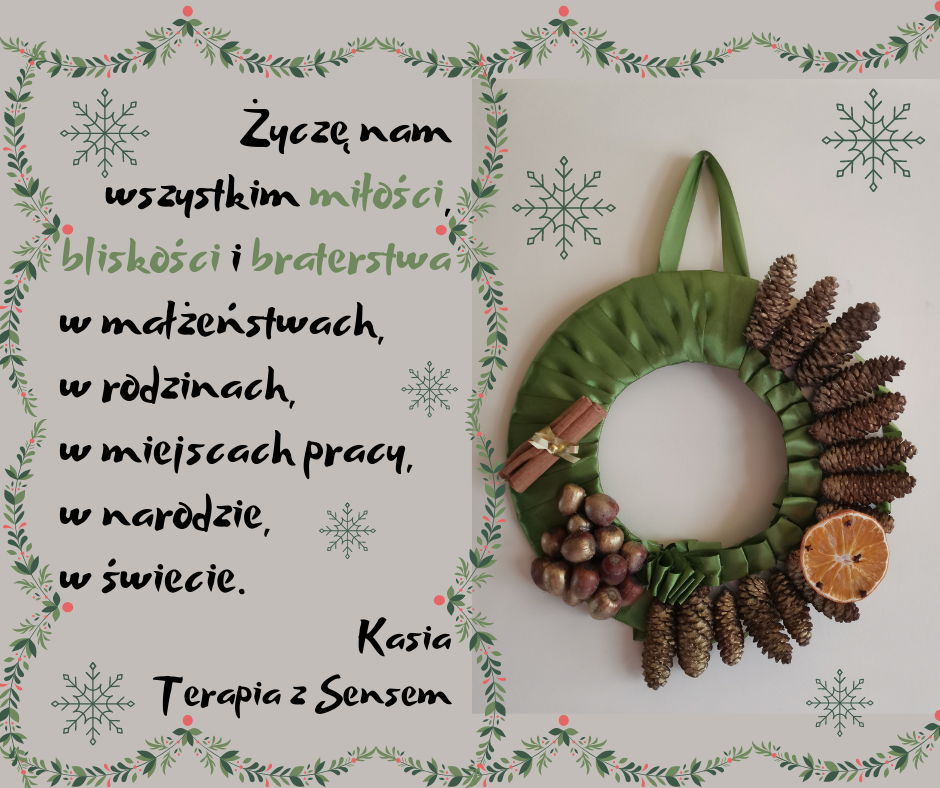 Życzę nam
wszystkim miłości,
bliskości i braterstwa
w małżeństwach,
w rodzinach,
w miejscach pracy,
w narodzie,
w świecie.
Kasia
Terapia z Sensem